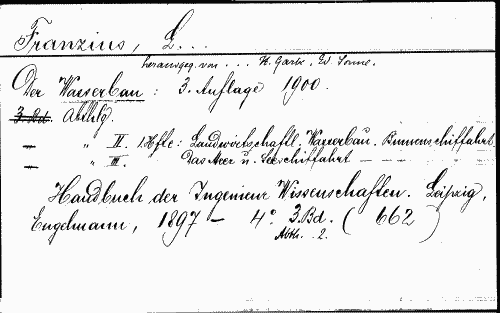 Franzius, L...
herausgeg. von ... H. Garbe, W. Sonne.
Der Wasserbau : 3. Auflage 1900.
3. Bd. Abthlg.
— " II. 1. Hfte : Landwirtschaftl. Wasserbau. Binnenschiffahrt
— " III. Das Meer u. Seeschiffahrt — — —
Handbuch der Ingenieur Wissenschaften. Leipzig,
Engelmann, 1897 — 4° 3. Bd. ( 662 )
Abth. 2.